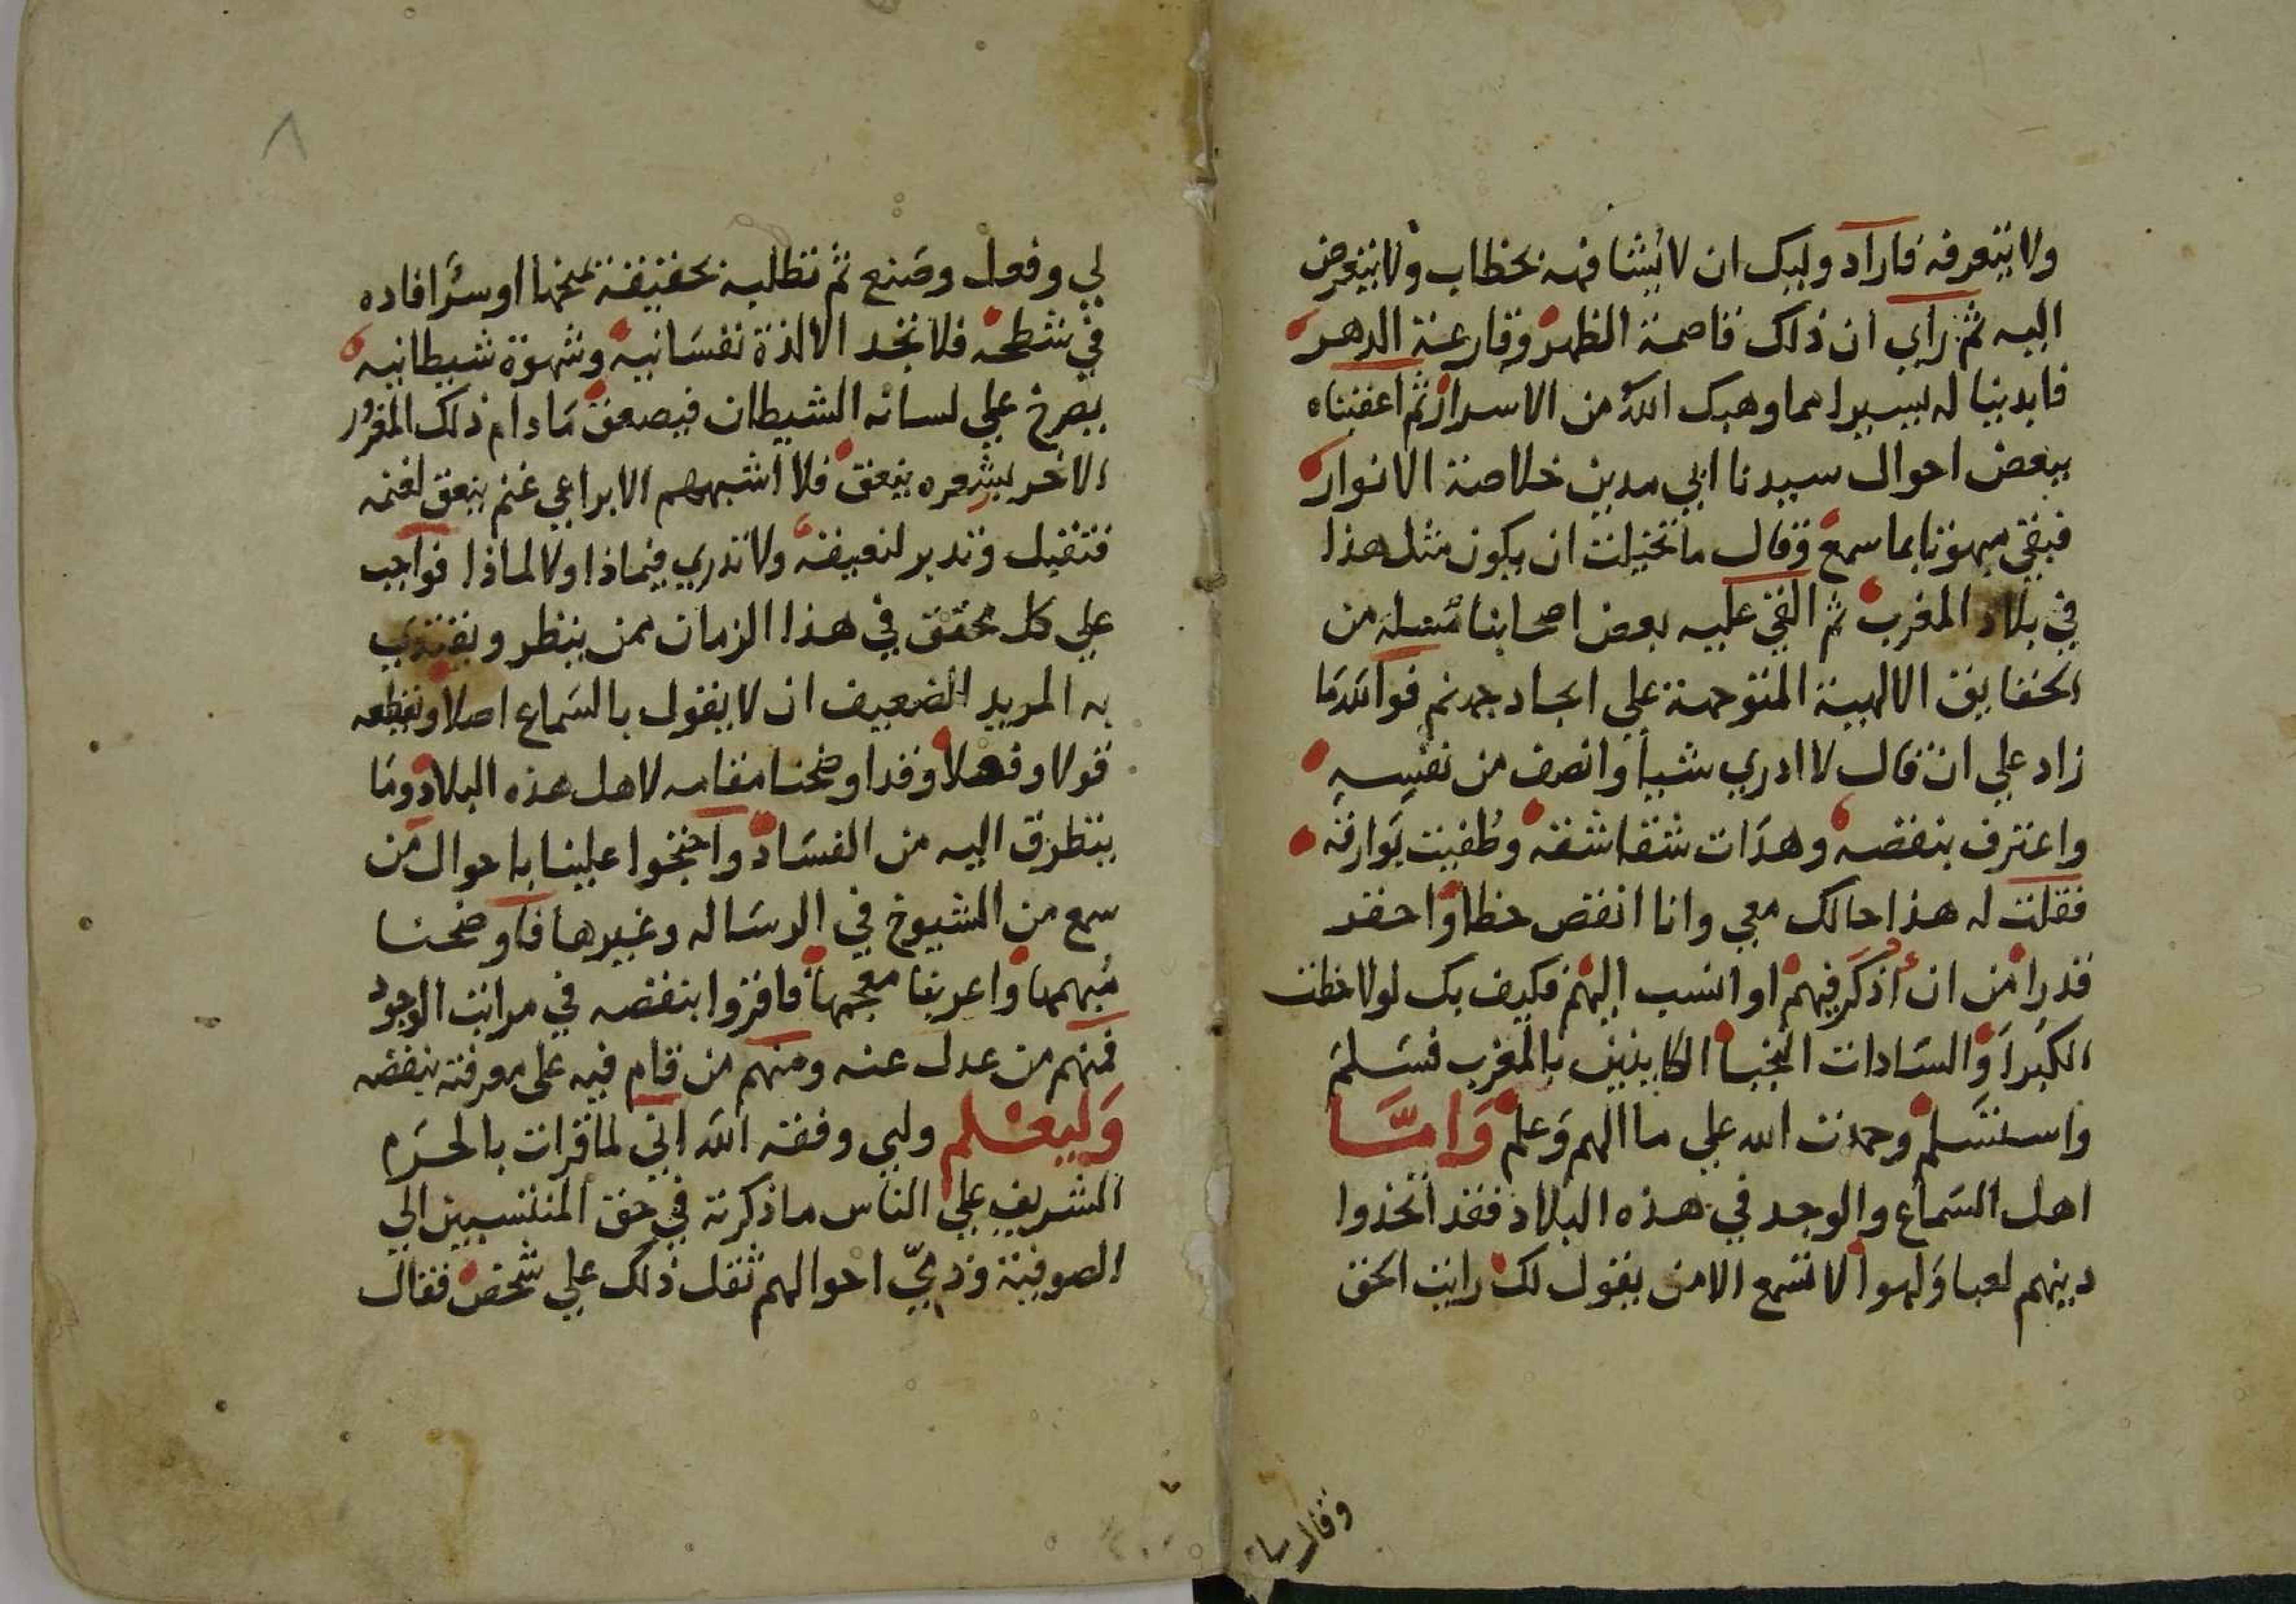 ولا يتعرفه فاراد وليك ان لا يشافهه بخطاب ولا يتعرض
اليه ثم راي ان ذلك قاصمة الظهر وقارعة الدهر
فابدينا له يسيرا مما وهبك الله من الاسرار ثم اعقبناه
ببعض احوال سيدنا ابي مدين خلاصة الانوار
فبقي مبهوتا بما سمع وقال ما تخيلت ان يكون مثل هذا
في بلاد المغرب ثم القي عليه بعض اصحابنا مسئلة من
الحقايق الالهية المتوجهة علي ايجاد جهنم فوالله ما
زاد علي ان قال لا ادري شيأ وانصف من نفسه
واعترف بنقصه وهدات شقاشقه وطفيت بوارقه
فقلت له هذا حالك معي وانا انقص حظا واحقد
قدرا من ان أذكر فيهم او انسب اليهم فكيف بك لو لاحظت
الكبرا والسادات النجبا الكاينين بالمغرب فسلم
واستسلم وحمدت الله علي ما الهم وعلم وَامَّا
اهل السماع والوجد في هذه البلاد فقد اتخذوا
دينهم لعبا ولهوا لا تسمع الا من يقول لك رايت الحق
وقال لي
٨
لي وفعل وصنع ثم تطلبه بحقيقة يمنحها او سر افاده
في شطحه فلا تجد الا لذة نفسانيه وشهوة شيطانيه
يصرخ علي لسانه الشيطان فيصعق ما دام ذلك المغرور
الاخر بشعره ينعق فلا اشبههم الا براعي غنم ينعق لغنمه
فتقبل وتدبر لنعيقه ولا تدري فيماذا ولا لماذا فواجب
علي كل محقق في هذا الزمان ممن ينظر ويقتدي
به المريد الضعيف ان لا يقول بالسماع اصلا ويقطعه
قولا وفعلا وقد اوضحنا مقامه لاهل هذه البلاد وما
يتطرق اليه من الفساد واحتجوا علينا باحوال من
سمع من الشيوخ في الرساله وغيرها فاوضحنا
مبهمها واعربنا معجمها فاقروا بنقصه في مراتب الوجود
فمنهم من عدل عنه ومنهم من قام فيه على معرفة بنقصه
وَليعْلم وليي وفقه الله اني لما قرات بالحرم
الشريف علي الناس ما ذكرته في حق المنتسبين الي
الصوفية وذمّيّ احوالهم ثقل ذلك علي شخص فقال